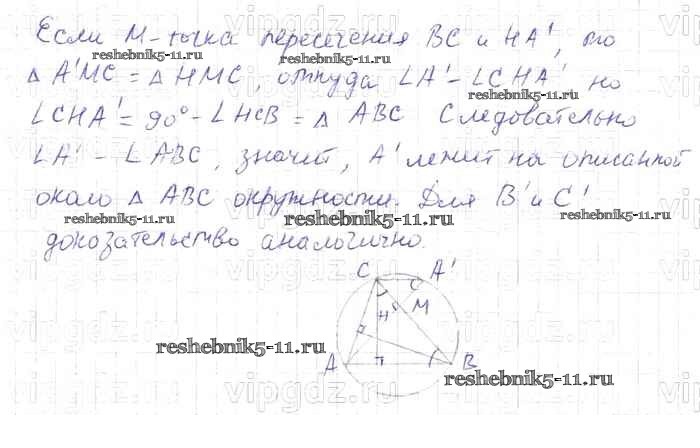 Если M-точка пересечения BC и HA', то
reshebnik5-11.ru
Δ A'MC = Δ HMC, откуда ∠A' - ∠CHA' но
reshebnik5-11.ru
∠CHA' = 90° - ∠HCB = Δ ABC Следовательно
∠A' - ∠ABC, значит, A' лежит на описанной
около Δ ABC окружности. Для B' и C'
reshebnik5-11.ru reshebnik5-11.ru reshebnik5-11.ru
доказательство аналогично.
C A'
M
H
reshebnik5-11.ru
A B
reshebnik5-11.ru
vipgdz.ru